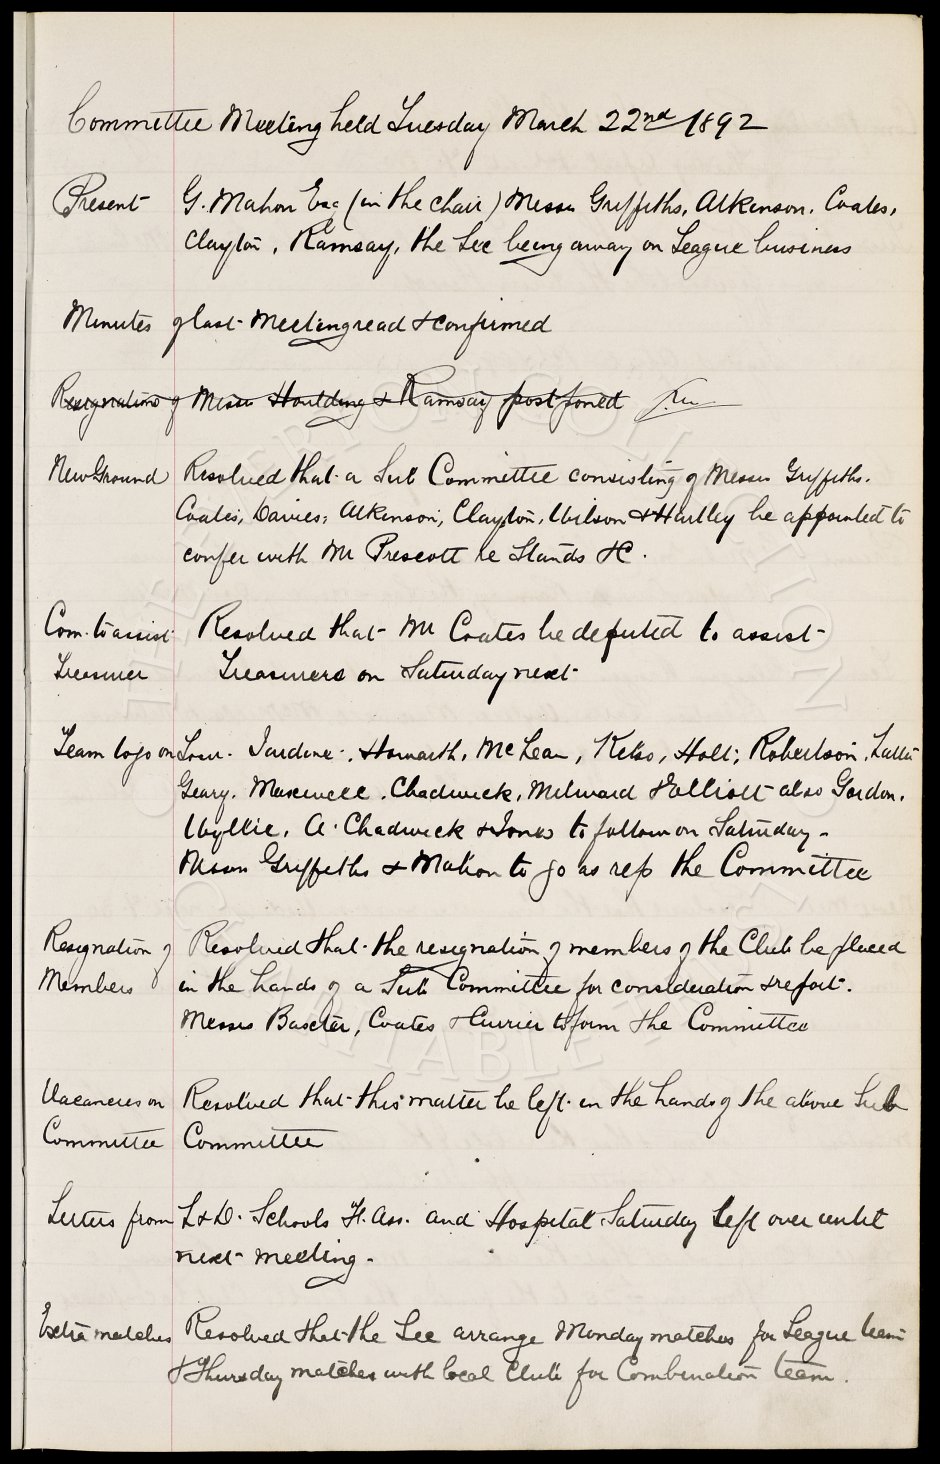 Committee Meeting held Tuesday March 22nd 1892
Present G. Mahon Esq (in the chair) Messrs Griffiths, Atkinson, Coates,
Clayton, Ramsay, the Sec being away on League business
Minutes of last meeting read & confirmed
Resignations of Messrs Houlding & Ramsay postponed
New Ground Resolved that a Sub Committee consisting of Messrs Griffiths.
Coates, Davies, Atkinson, Clayton, Wilson & Hartley be appointed to
confer with Mr Prescott re Stands &c.
Com. to assist Resolved that Mr Coates be deputed to assist
Treasurer Treasurers on Saturday next
Team to go on Jardine, Howarth, McLean, Kelso, Holt, Robertson, Latta
Geary, Maxwell, Chadwick, Milward & Elliott also Gordon,
Wyllie, A. Chadwick & Jones to follow on Saturday -
Messrs Griffiths & Mahon to go as rep the Committee
Resignation of Resolved that the resignation of members of the Club be placed
Members in the hands of a Sub Committee for consideration & report.
Messrs Baxter, Coates & Currier to form the Committee
Vacancies on Resolved that this matter be left in the hands of the above Sub
Committee Committee
Letters from L & D. Schools F. Ass. and Hospital Saturday left over until
next meeting -
Extra matches Resolved that the Sec arrange Monday matches for League team
& Thursday matches with local Club for Combination team.
THE EVERTON COLLECTION
CHARITABLE TRUST